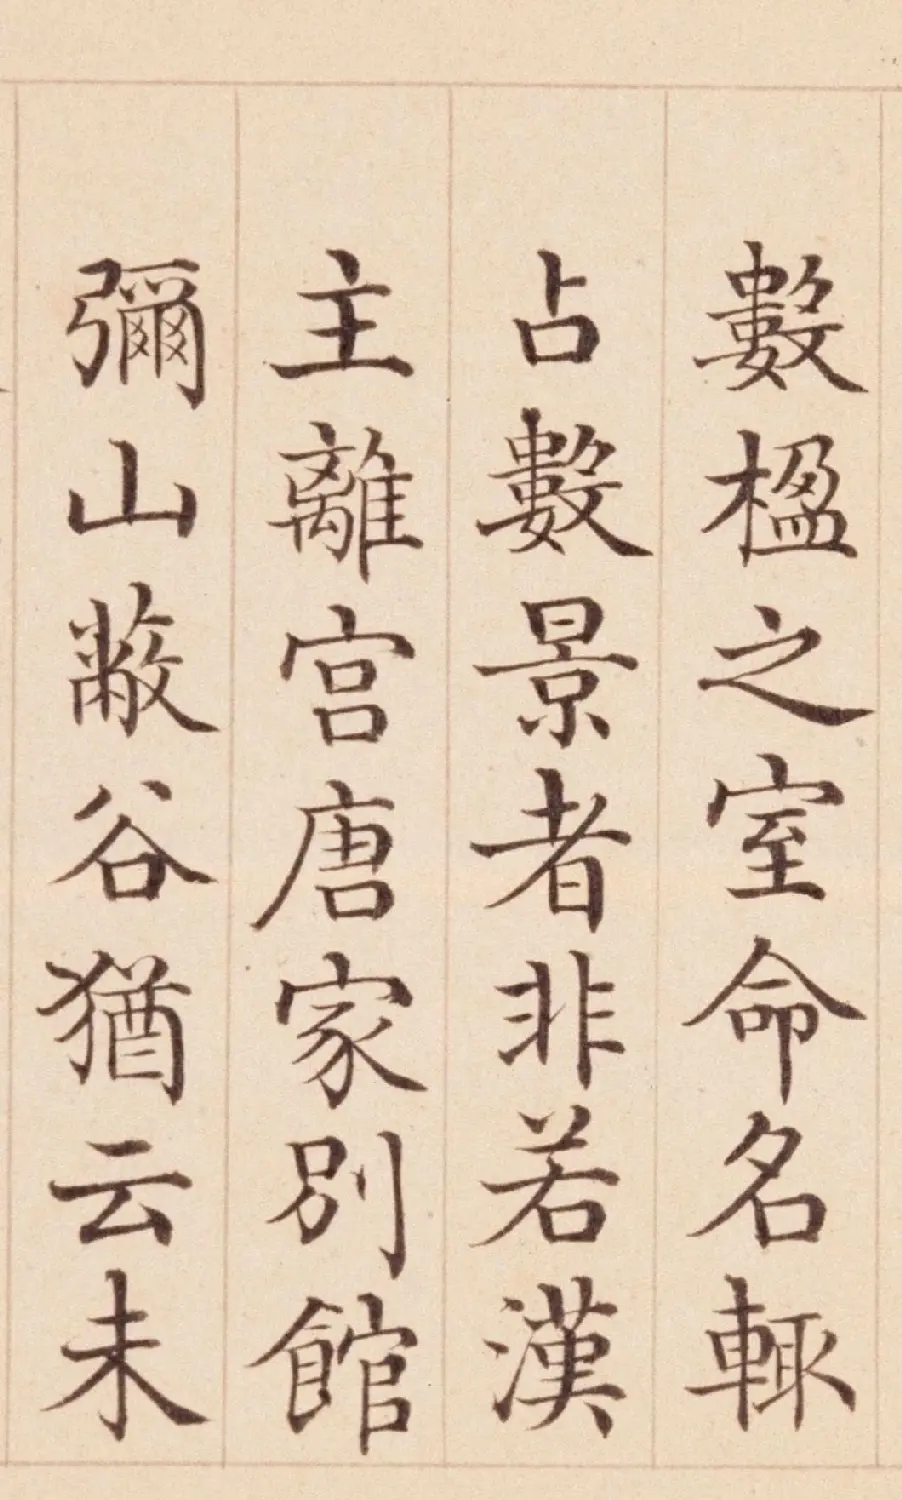 數楹之室命名輙
占數景者非若漢
主離宮唐家別館
彌山蔽谷猶云未